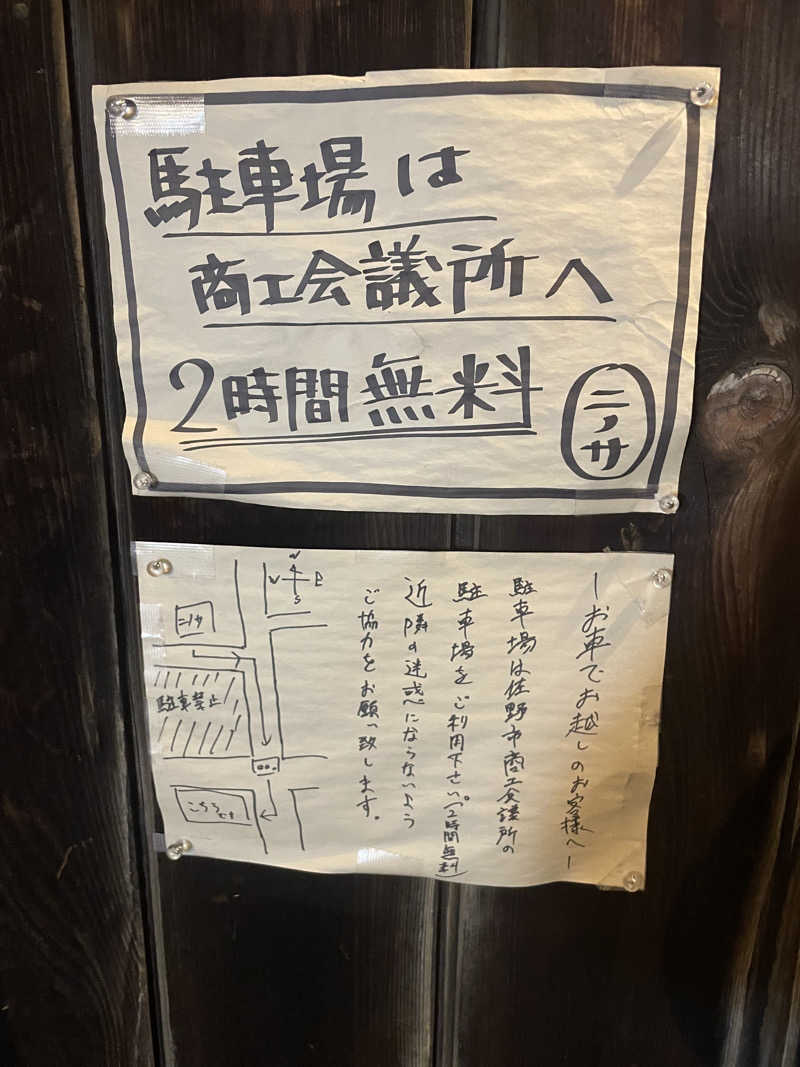 駐車場は
商工会議所へ
2時間無料
ニノサ
ーお車でお越しのお客様へー
駐車場は佐野市商工会議所の
駐車場をご利用下さい。(2時間無料)
近隣の迷惑にならないよう
ご協力をお願い致します。
N
W E
S
ニノサ
駐車禁止
こちらです